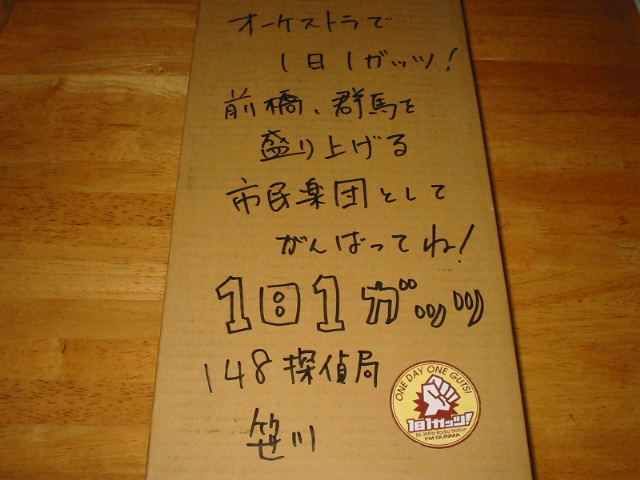 オーケストラで
1日1ガッツ!
前橋、群馬を
盛り上げる
市民楽団として
がんばってね!
1日1ガッツ
148探偵局
笹川
ONE DAY ONE GUTS!
1日1ガッツ!
86.3MHz Radio Station
FM GUNMA